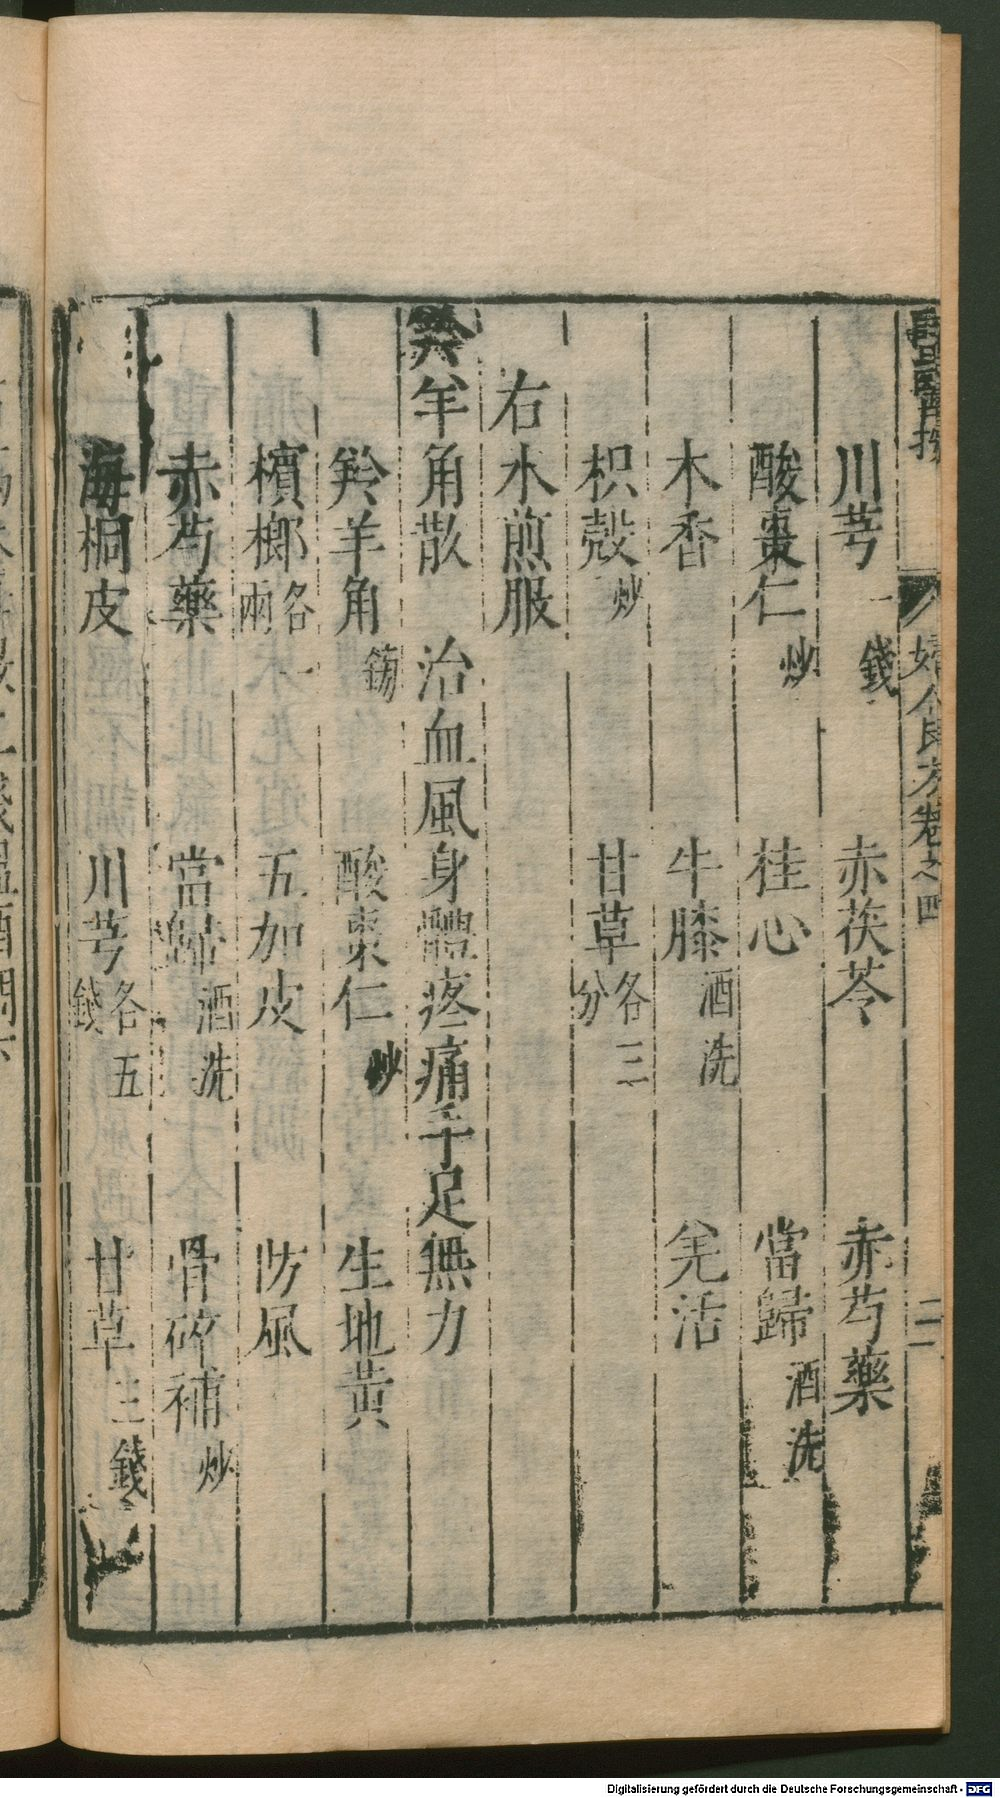 婦人良方卷之四
二
川芎一錢 赤茯苓 赤芍藥
酸棗仁炒 桂心 當歸酒洗
木香 牛膝酒洗 羌活
枳殼炒 甘草各三分
右水煎服
羚羊角散 治血風身體疼痛手足無力
羚羊角鎊 酸棗仁炒 生地黃
檳榔各一兩 五加皮 防風
赤芍藥 當歸酒洗 骨碎補炒
海桐皮 川芎各五錢 甘草三錢
Digitalisierung gefördert durch die Deutsche Forschungsgemeinschaft - DFG